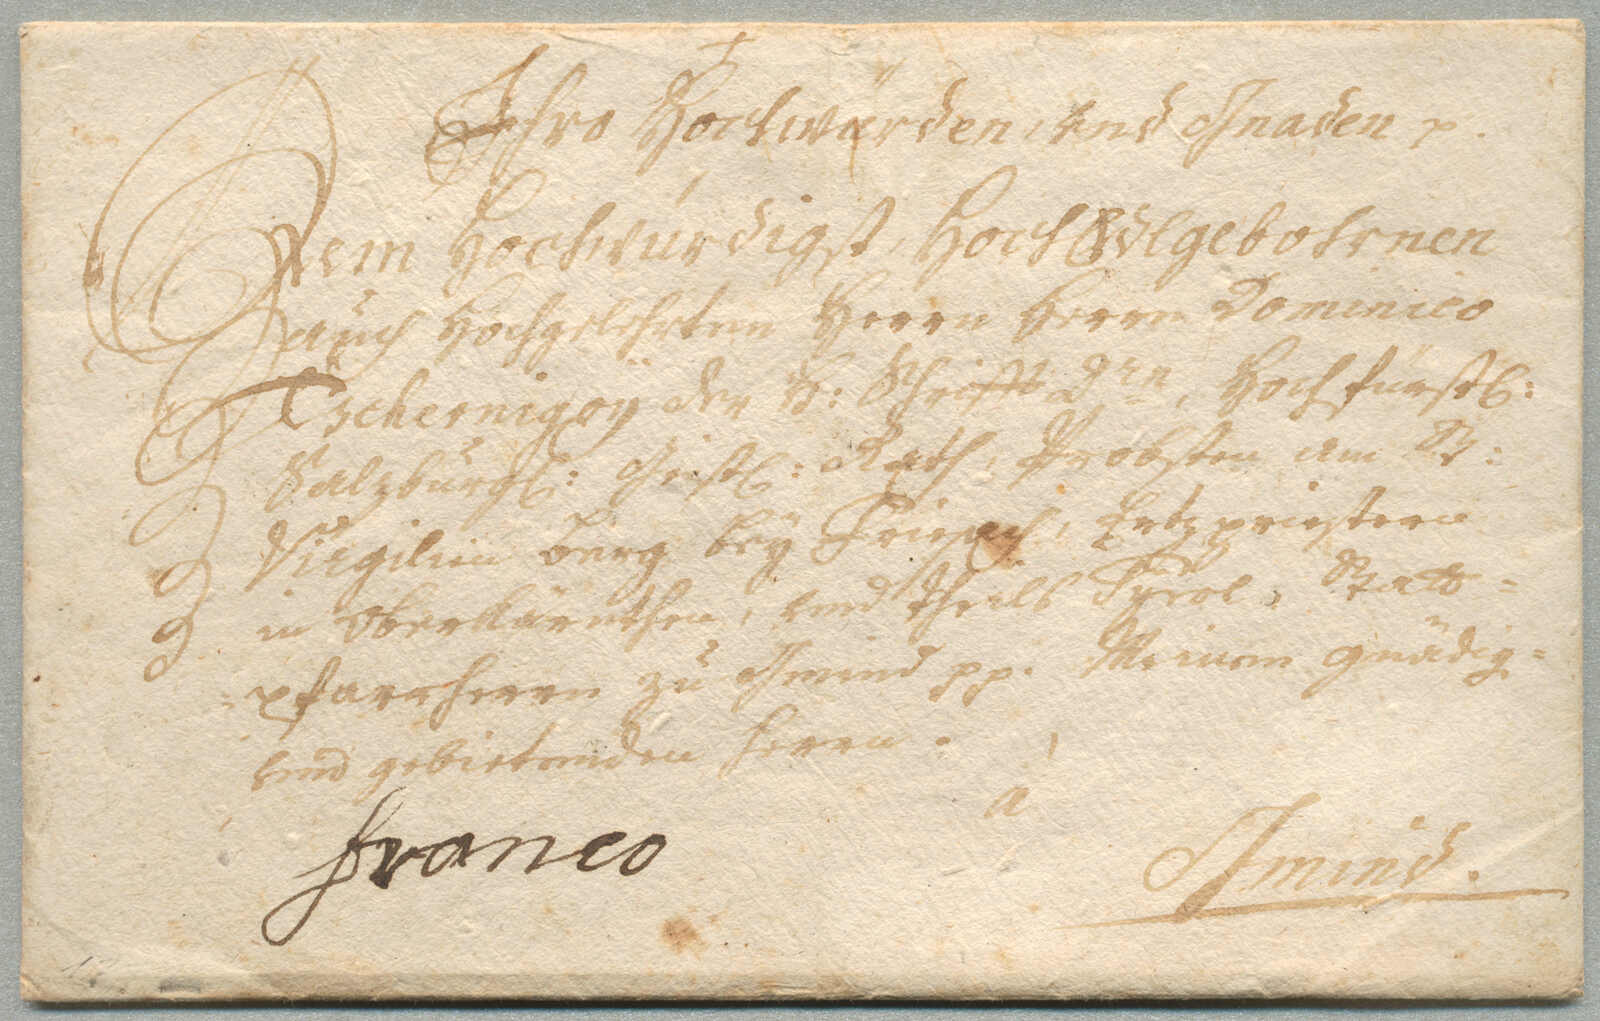 Ihro Hochwürden, und Gnaden p.
Dem Hochwürdigst, HochEdlgebohrnen
auch Hochgelehrten Herrn Herrn Dominico
Tschernigoÿ der H: Schrifft Drn, Hochfürstl:
Salzburgl: Geistl: Rath, Probsten am St:
Virgilien Berg beÿ Friesach, Ertzpriestern
in Oberkärnthen, und theils Tyrol, Statt=
pfarrherrn zu Gmünd pp. Meinem gnädig=
und gebietenden Herrn.
a
Franco
Gmünd.